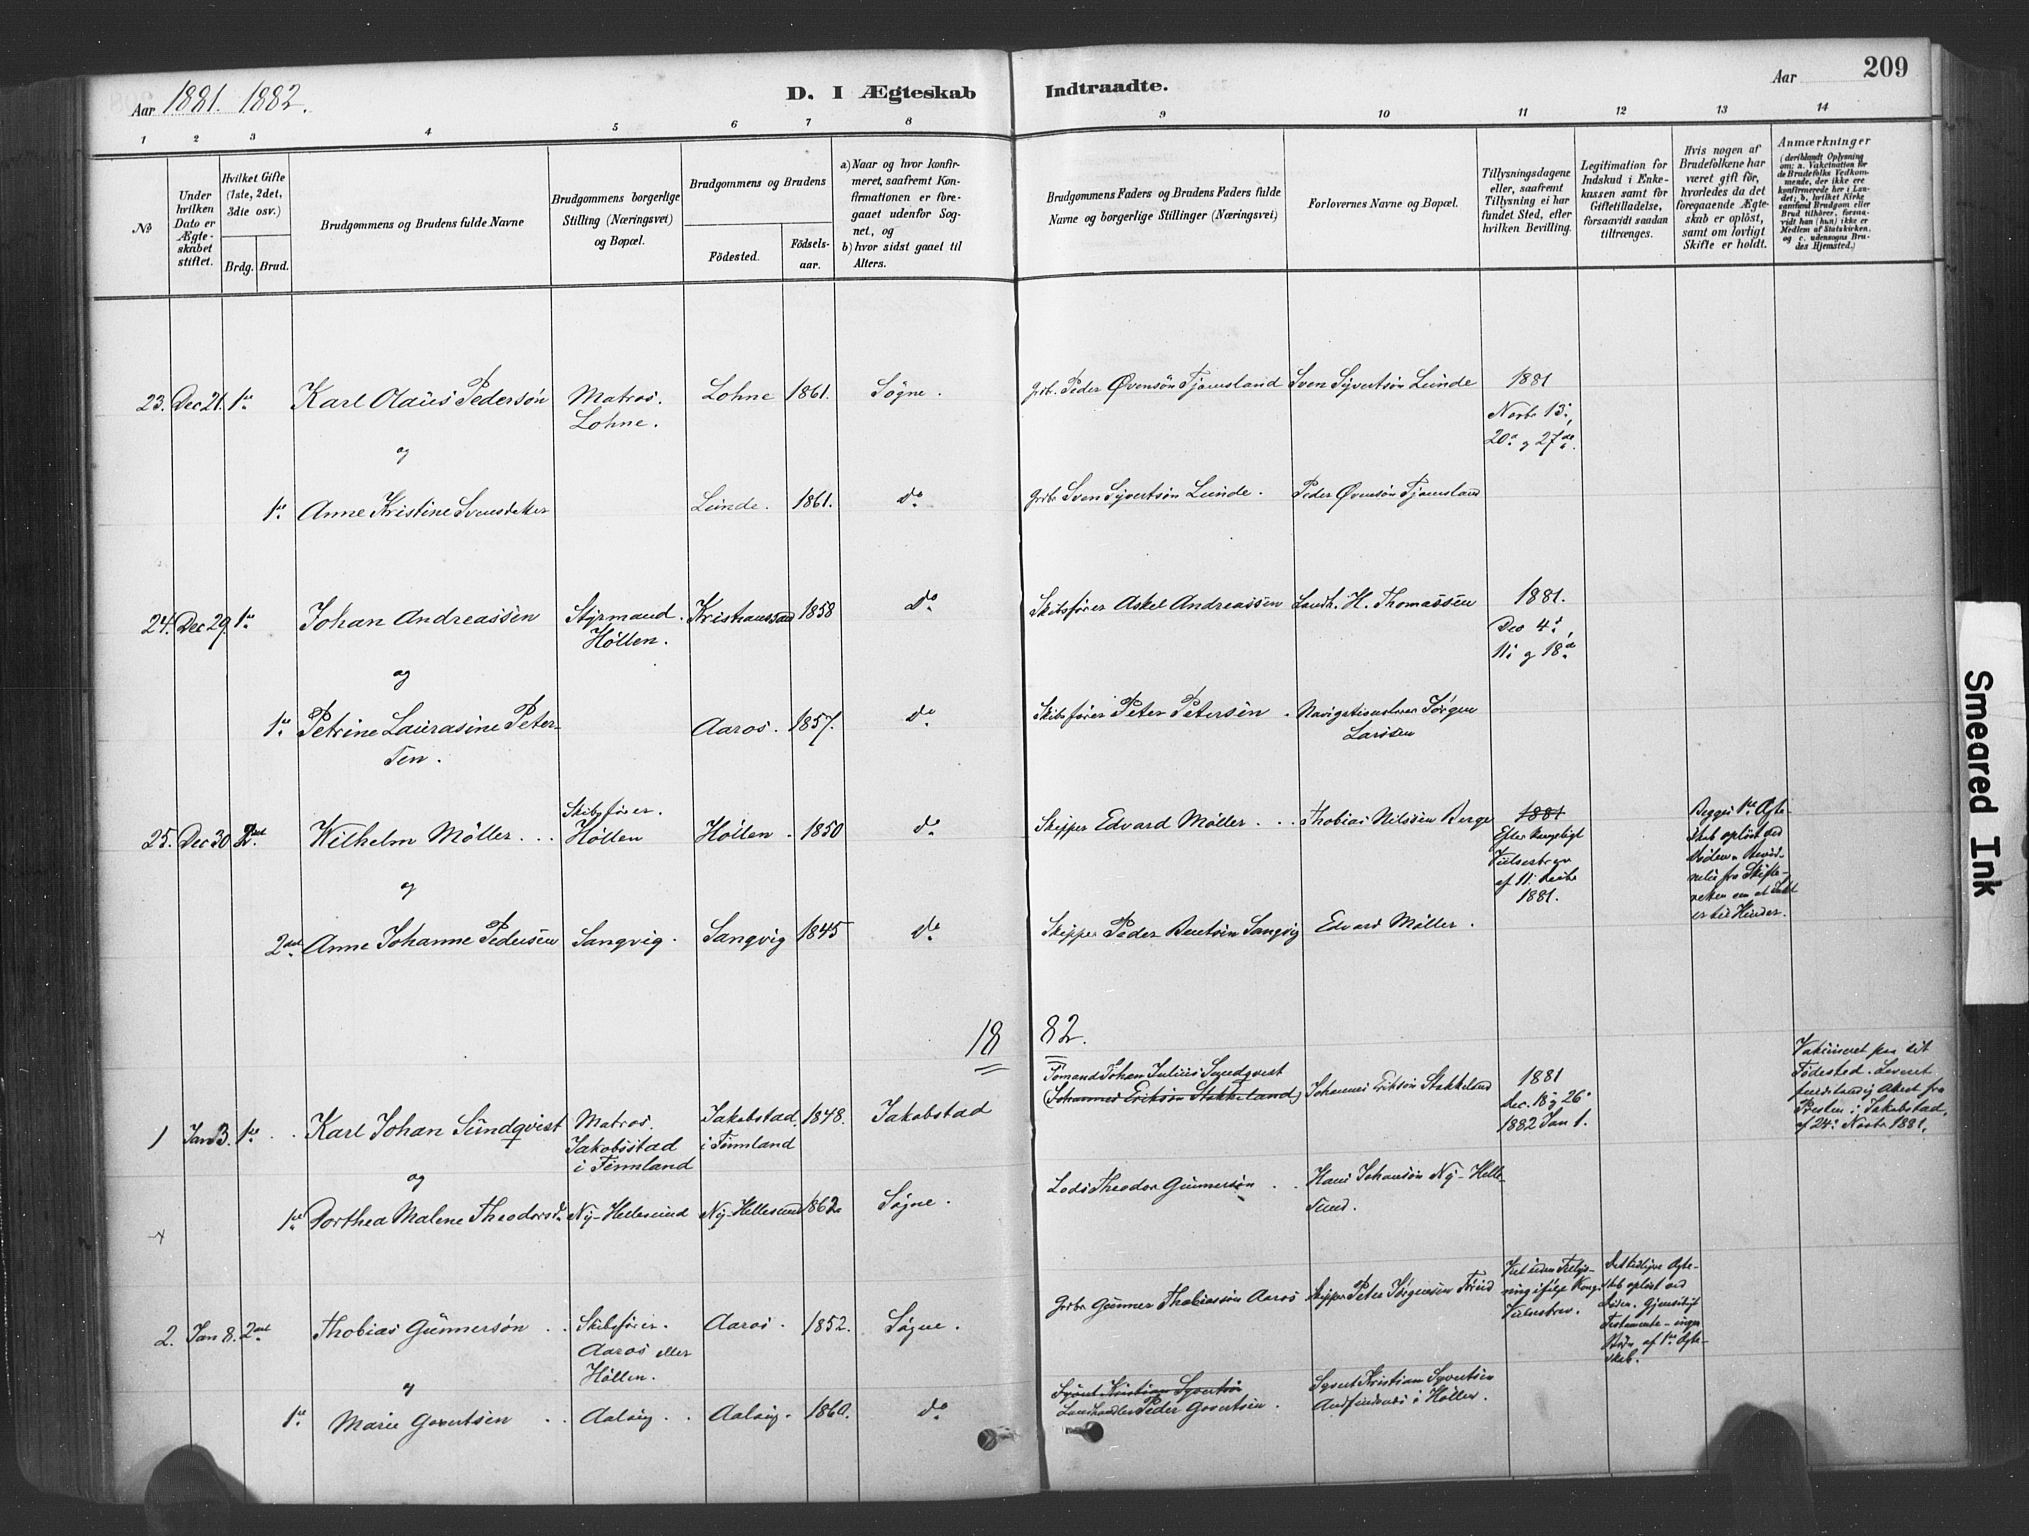 Aar 1881. 1882.
D. I Ægteskab Indtraadte.
Aar 209
1 2 3 4 5 6 7 8 9 10 11 12 13 14
No
Under hvilken Dato er Ægteskabet stiftet.
Hvilket Gifte (1ste, 2det, 3die osv.)
Brdg. Brud.
Brudgommens og Brudens fulde Navne
Brudgommens borgerlige Stilling (Næringsvei) og Bopæl.
Brudgommens og Brudens
Födested.
Födsels-aar.
a) Naar og hvor konfirmeret, saafremt Konfirmationen er foregaaet udenfor Sognet, og
b) hvor sidst gaaet til Alters.
Brudgommens Faders og Brudens Faders fulde Navne og borgerlige Stillinger (Næringsvei)
Forlovernes Navne og Bopæl.
Tillysningsdagene eller, saafremt Tillysning ei har fundet Sted, efter hvilken Bevilling.
Legitimation for Indskud i Enkekassen samt for Giftetilladelse, forsaavidt saadan tiltrænges.
Hvis nogen af Brudefolkene har været gift för, hvorledes da det foregaaende Ægteskab er oplöst, samt om lovligt Skifte er holdt.
Anmærkninger
23. Dec 21. 1ste Karl Olaus Pedersøn Matros. Lohne. Lohne 1861. Søgne. Grdbr. Peder Øvensøn Tjomsland Sven Syvertsøn Lunde 1881 Novbr 13., 20de og 27de.
og
1ste Anne Kristine Svensdatter Lunde. 1861. do Grdbr Sven Syvertsøn Lunde. Peder Øvensøn Tjomsland
24. Dec 29. 1ste Johan Andreassen Styrmand. Høllen. Kristianssand 1858 do Skibsfører Askel Andreassen Landh. H. Thomassen 1881. Dec 4de, 11te og 18de
og
1ste Petrine Laurasine Petersen. Aaros. 1857. do Skibsfører Peter Petersen. Navigationslærer Jørgen Larssen
25. Dec 30 2det Wilhelm Möller... Skibsfører. Høllen Høllen. 1850 do Skipper Edvard Møller... Thobias Nilssen Berge 1881 Efter Kongeligt Vielsesbrev af 11te 1881.
Begges 1ste Ægteskab opløst ved Døden. fra Skifteretten om at Intet er til Hinder.
og
2det Anne Johanne Pedersen Sangvig. Sangvig 1845 do Skipper Peder Bentsen Sangvig Edvard Møller.
1882.
1 Jan 3. 1ste Karl Johan Sundqvist Matros. Jakobsstad i Finnland Jakobstad, i Finnland 1848. Jakobstad Sømand Johan Julius Sundqvest (Johannes Eriksøn Stokkeland) Johannes Eriksøn Stokkeland 1881 Dec. 18 og 26. 1882 Jan 1.
Vakcineret paa sit Fødested. Leveret fuldstændig Attest fra Presten i Jakobstad, af 24. Novbr 1881.
og
1ste Dorthea Malene Theodorsd. Ny-Hellesund Ny-Hellesund 1862 Søgne. Lods Theodor Gunnersøn.. Hans Johansøn Ny-Hellesund.
2. Jan 8. 2det Thobias Gunnersøn.. Skibsfører. Aaros eller Høllen. Aaros. 1852. Søgne. Grdbr Gunner Thobiassøn Aaros Skipper Peter Jørgensen Viet uden Tillysning ifølge Kong. Vielsesbrev.
Det tidligere Ægteskab opløst ved Døden. Gjensidigt Testamente - ingen Børn af 1ste Ægteskab.
og
1ste Marie Govertsen.. Aalvig.. Aalvig. 1860. do Syvert Kristian Syvertsøn Landhandler Peder Govertsen. Syvert Kristian Syvertsen i Høllen.
Smeared Ink